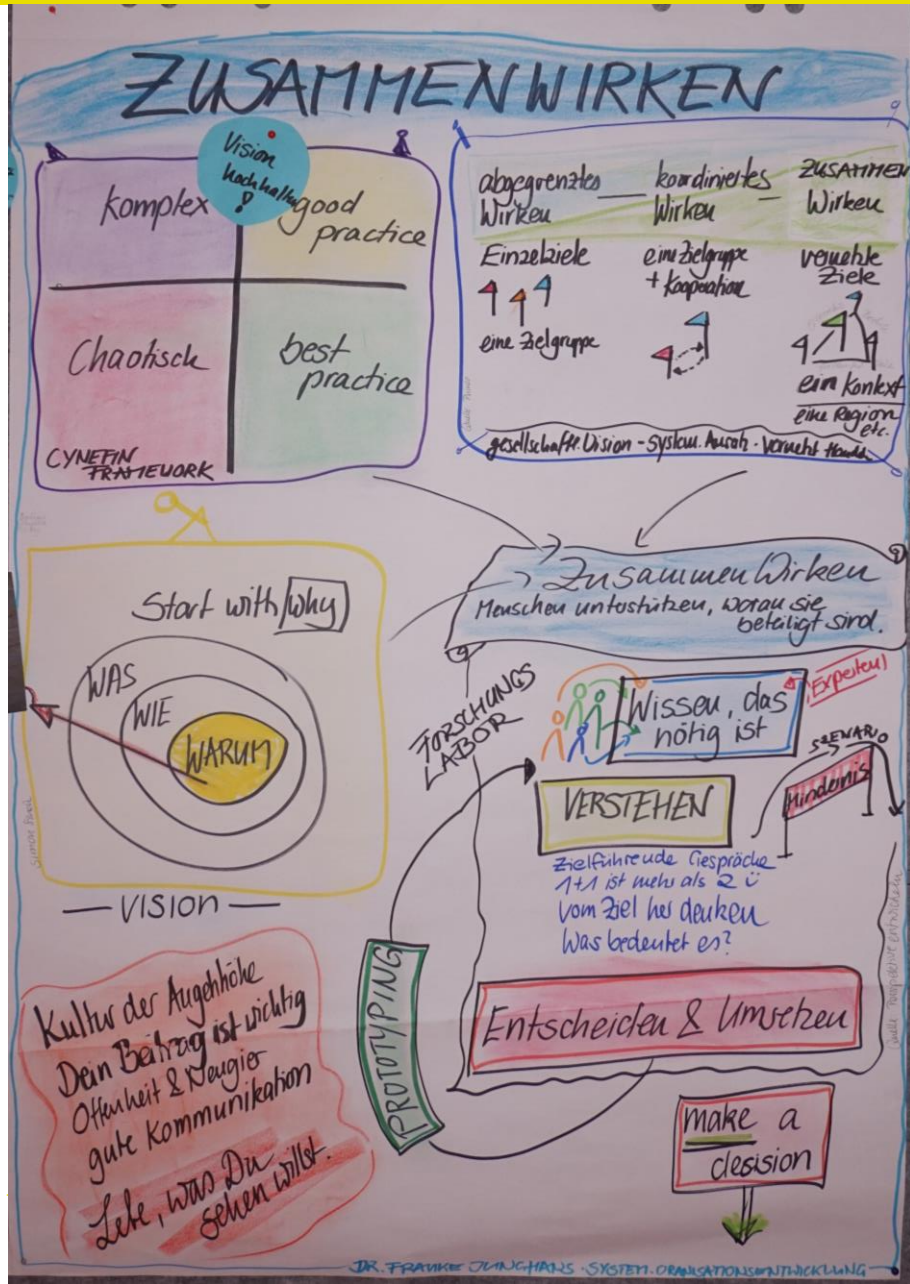 ZUSAMMENWIRKEN
Vision
hochhalten!
Komplex
good
practice
Chaotisch
best
practice
CYNEFIN
FRAMEWORK
abgegrenztes — koordiniertes — ZUSAMMEN
Wirken Wirken Wirken
Einzelziele
eine Zielgruppe
eine Zielgruppe
+ Kooperation
vernetzte
Ziele
ein Kontext
eine Region
etc.
gesellschaftl. Vision - System. Ansatz - vernetzt
Start with why
WAS
WIE
WARUM
— VISION —
ZusammenWirken
Menschen unterstützen, woran sie
beteiligt sind.
FORSCHUNGS
LABOR
Wissen, das
nötig ist
Experten!
SZENARIO
Hindernis
VERSTEHEN
Zielführende Gespräche
1+1 ist mehr als 2 ü
vom Ziel her denken
Was bedeutet es?
Quelle Perspektive entwickeln
PROTOTYPING
Entscheiden & Umsetzen
make a
desision
Kultur der Augenhöhe
Dein Beitrag ist wichtig
Offenheit & Neugier
gute Kommunikation
Lebe, was Du
sehen willst.
DR. FRAUKE JUNGHANS · SYSTEM. ORANISATIONSENTWICKLUNG